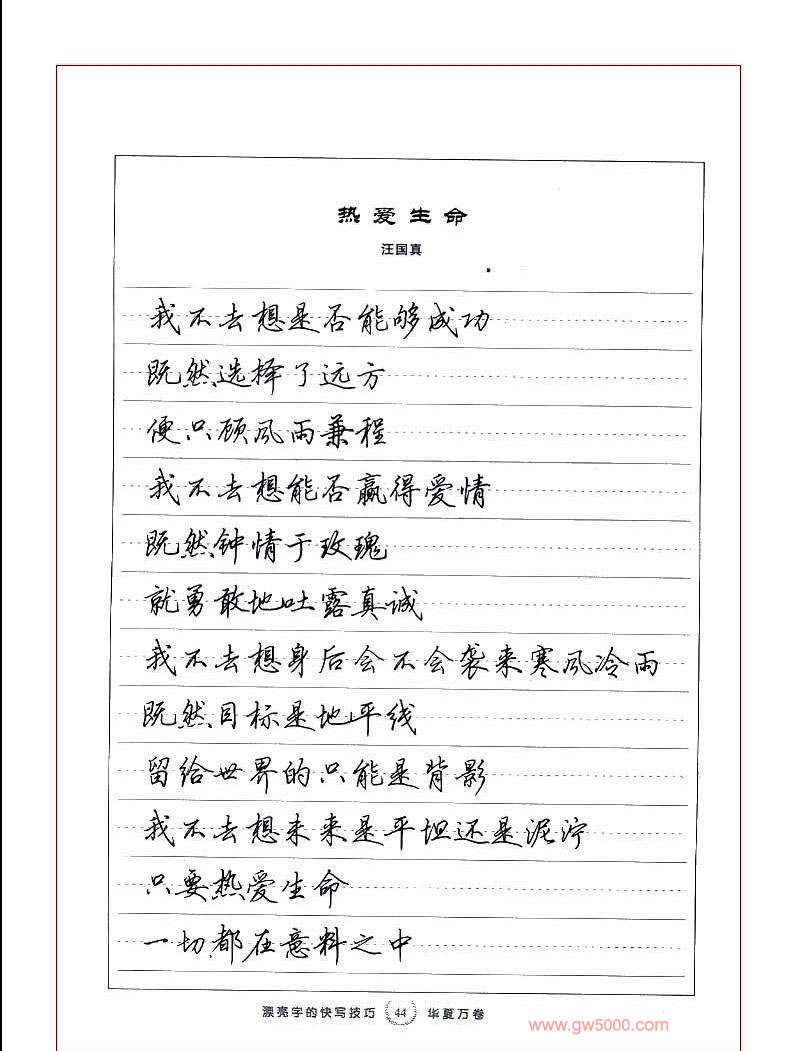 热爱生命
汪国真
我不去想是否能够成功
既然选择了远方
便只顾风雨兼程
我不去想能否赢得爱情
既然钟情于玫瑰
就勇敢地吐露真诚
我不去想身后会不会袭来寒风冷雨
既然目标是地平线
留给世界的只能是背影
我不去想未来是平坦还是泥泞
只要热爱生命
一切都在意料之中
漂亮字的快写技巧 44 华夏万卷
www.gw5000.com